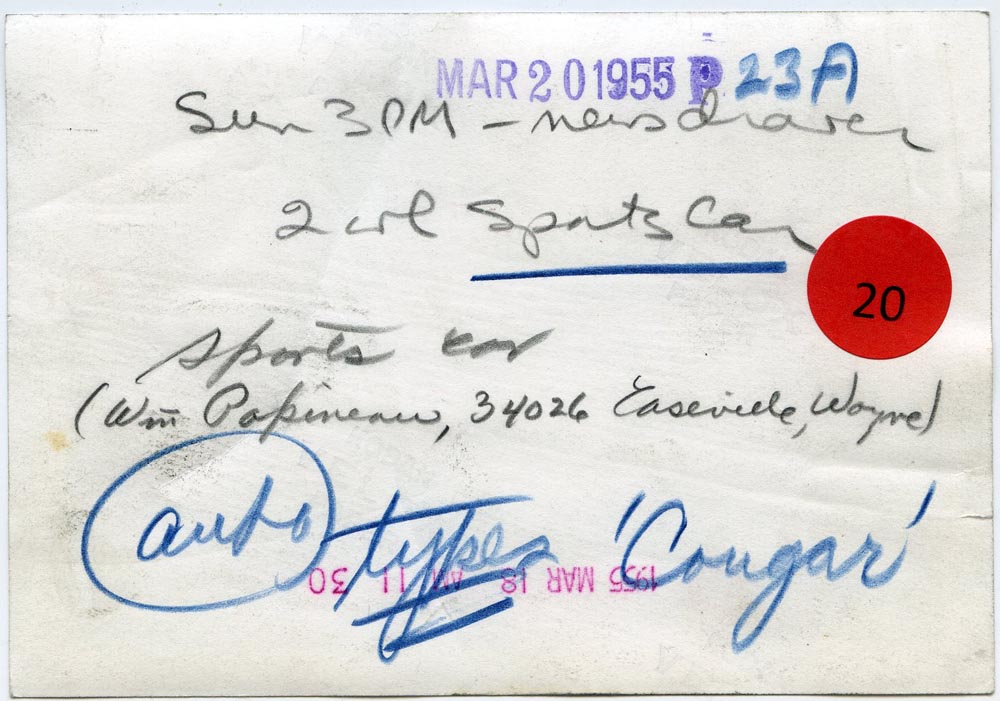 MAR 20 1955 P 23A
Sun 3 PM - news drawer
2 col Sports Car
20
sports car
(Wm Papineau, 34026 Wayne)
auto types 'Cougar'
1955 MAR 18 AM 11 30